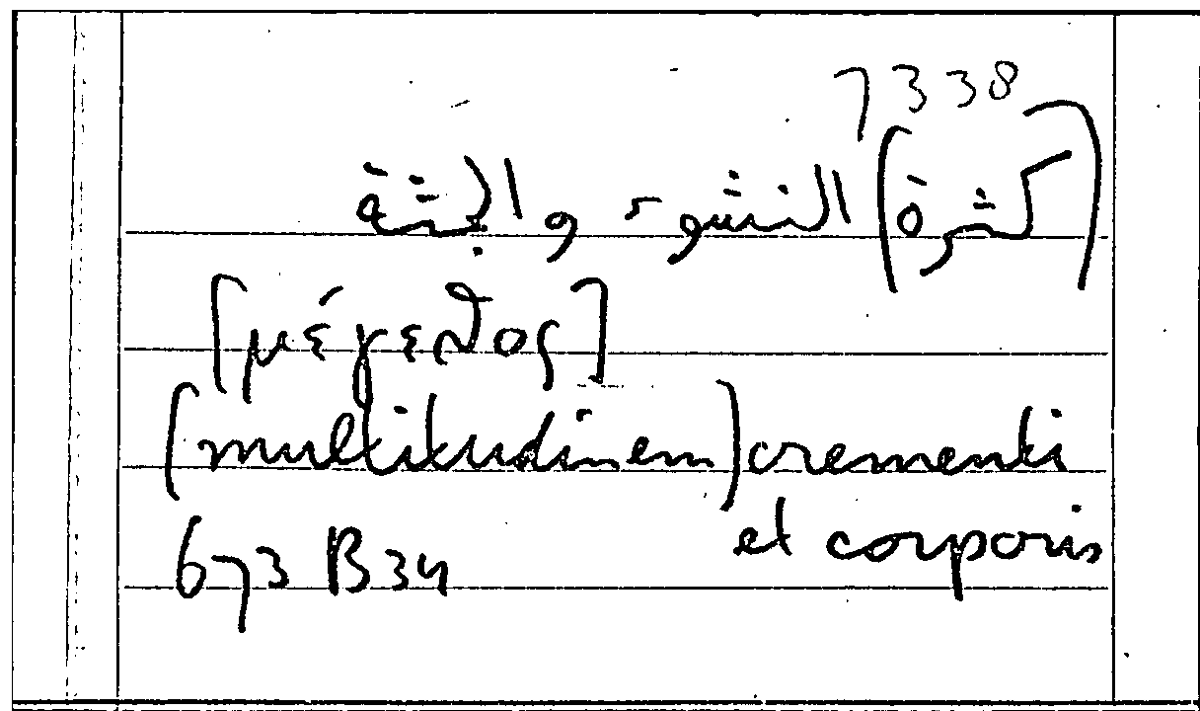 7338
(كثرة) النشوء والجثة
[μέγεθος]
(multitudinem) crementi
et corporis
673 B34